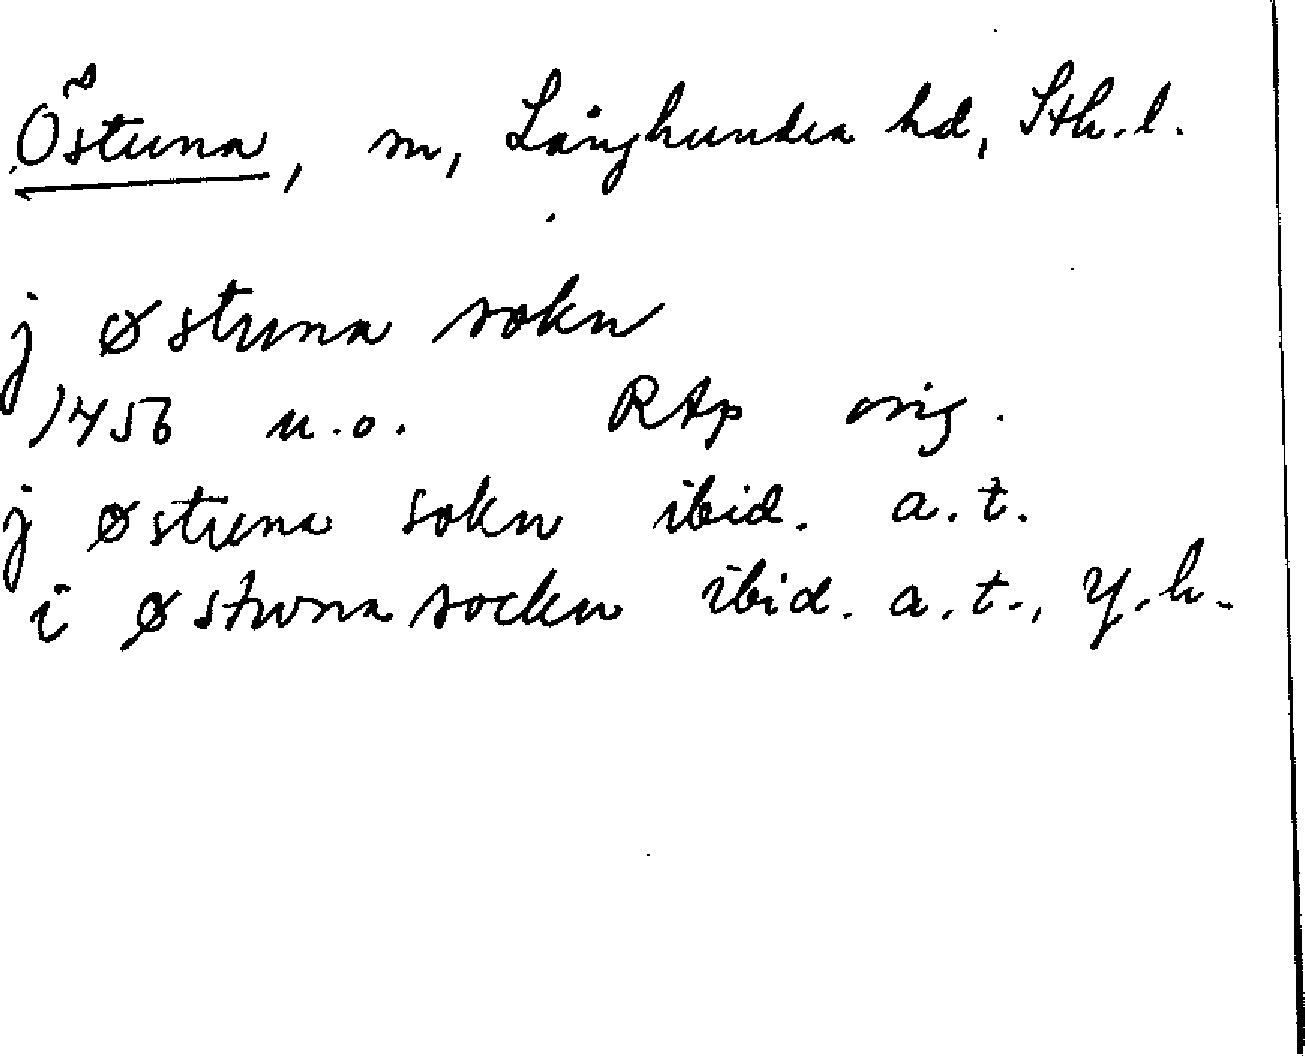 Östuna, sn, Långhundra hd, Sth.l.
j østuna sokn
1456 u.o. RAp orig.
j østuna sokn ibid. a.t.
i østwna sockn ibid. a.t., y.h.